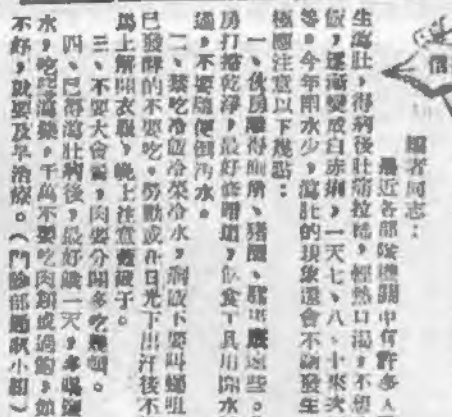 編者同志：
最近各部隊機關中有許多人
生瀉肚，得病後肚痛拉稀，輕熱口渴，不想
飯，逐漸變成白赤痢，一天七、八、十來次
等。今年雨水少，瀉肚的現象還會不斷發生
極應注意以下幾點：
一、伙房離得廁所、豬圈、遠些。
房打掃乾淨，最好修暗道，飲食工具用開水
過，不要隨便倒污水。
二、禁吃冷飯冷菜冷水，剩飯不要叫蠅咀
已發酵的不要吃。勞動或在日光下出汗後不
馬上解開衣服，晚上注意蓋被子。
三、不要大會餐，肉要分開多吃幾頓。
四、已得瀉肚病後，最好餓一天，多喝
水，吃些瀉藥，千萬不要吃肉類或過飽，如
不好，就要及早治療。（門診部